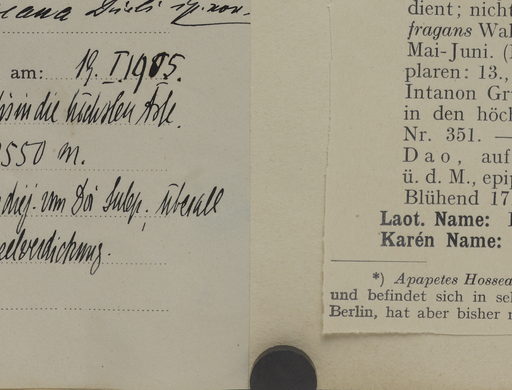 am: 19. I. 1905.
bis in die höchsten Äste.
1550 m.
vom Doi Sutep, überall
dient; nicht
fragans Wal
Mai-Juni. (
plaren: 13.,
Intanon Gr
in den höch
Nr. 351. —
Dao, auf
ü. d. M., epip
Blühend 17
Laot. Name:
Karén Name:
*) Apapetes Hossea
und befindet sich in sel
Berlin, hat aber bisher n